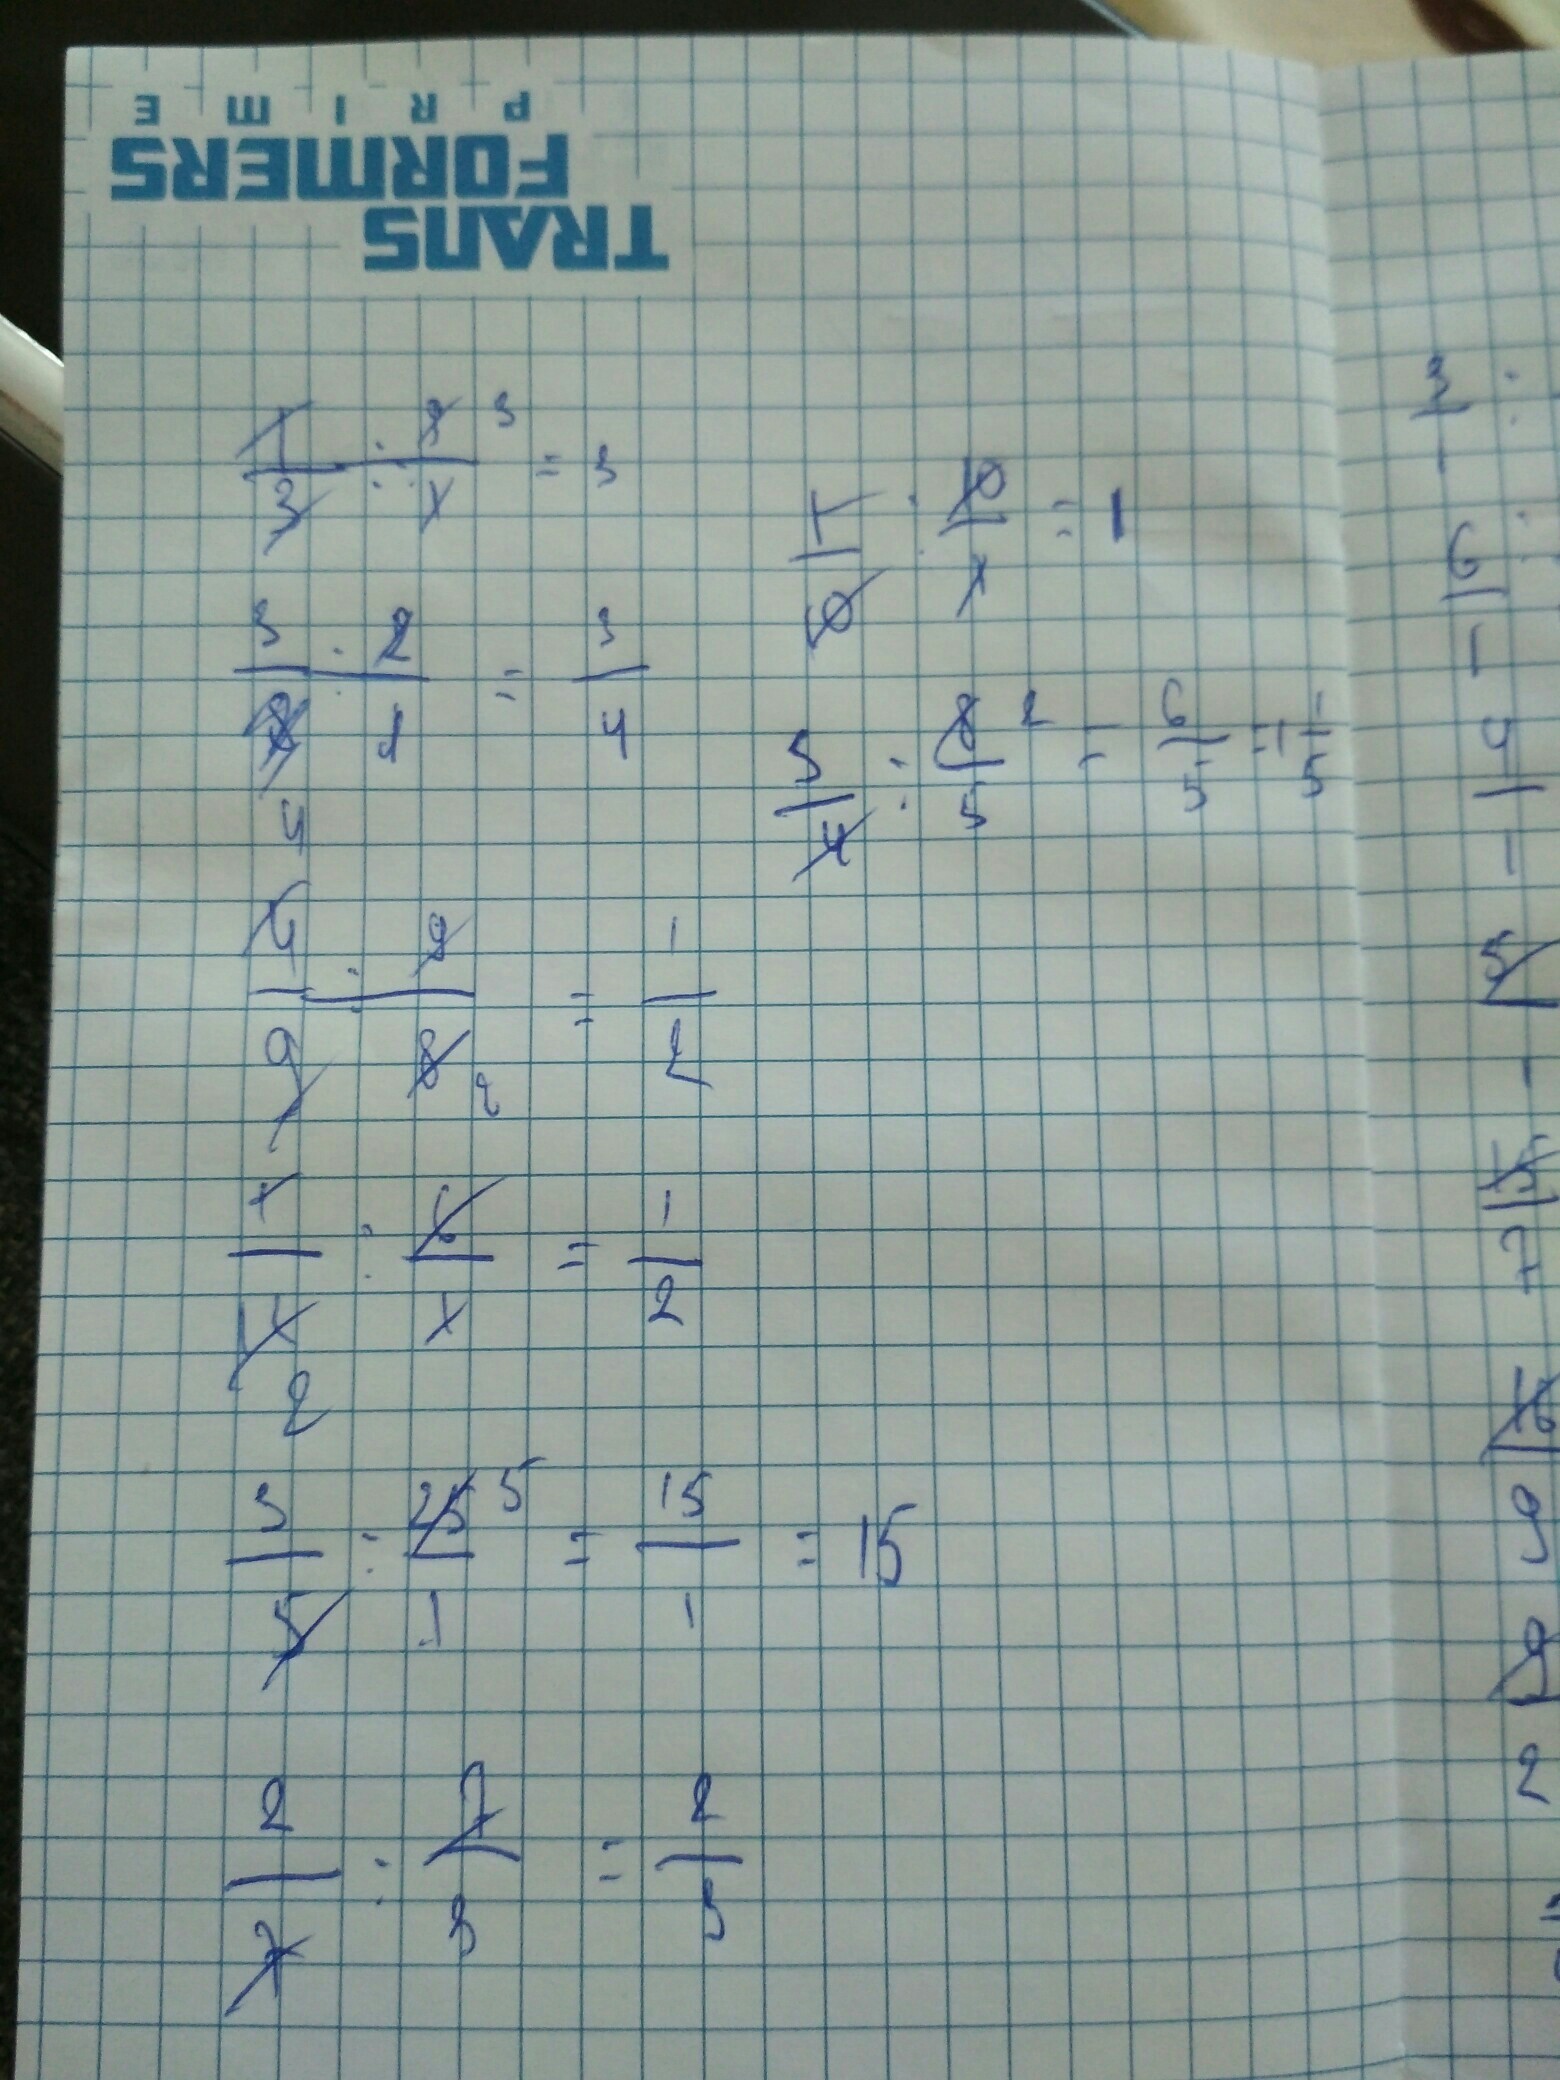 TRANS
FORMERS
PRIME
1/3 : 9/1 3 = 3
3/8 4 : 2/1 = 3/4
4/9 : 9/8 2 = 1/2
1/12 2 : 6/1 = 1/2
3/5 : 25/1 5 = 15/1 = 15
2/7 : 7/3 = 2/3
1/10 : 10/1 = 1
3/4 : 8/5 2 = 6/5 = 1 1/5
3
6
4
5
7
9
2